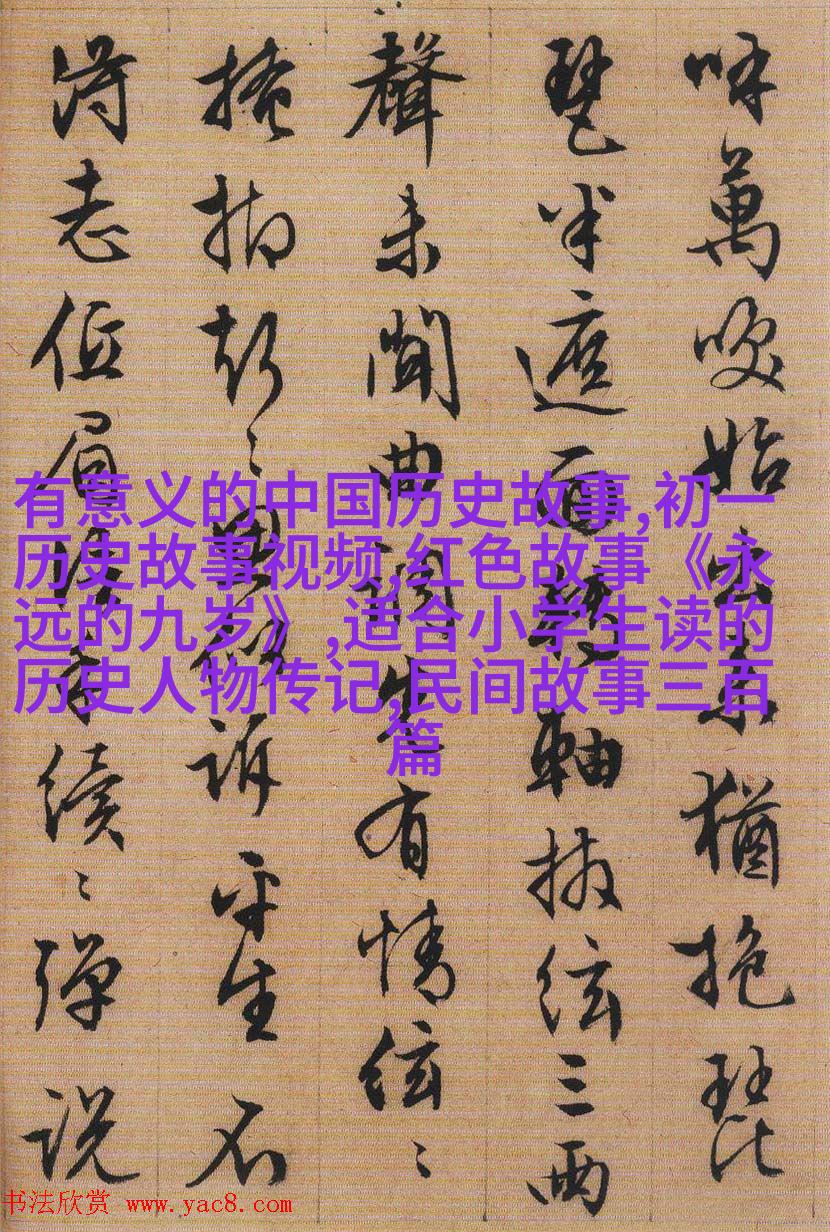 呼萬喚始出來猶抱琵
琶半遮面轉軸撥絃三兩
聲未聞曲調先有情絃〻
掩抑聲〻思似訴平生不
得志低眉信手續〻彈說
有意义的中国历史故事,初一
历史故事视频,红色故事《永
远的九岁》,适合小学生读的
历史人物传记,民间故事三百
篇
书法欣赏 www.yac8.com